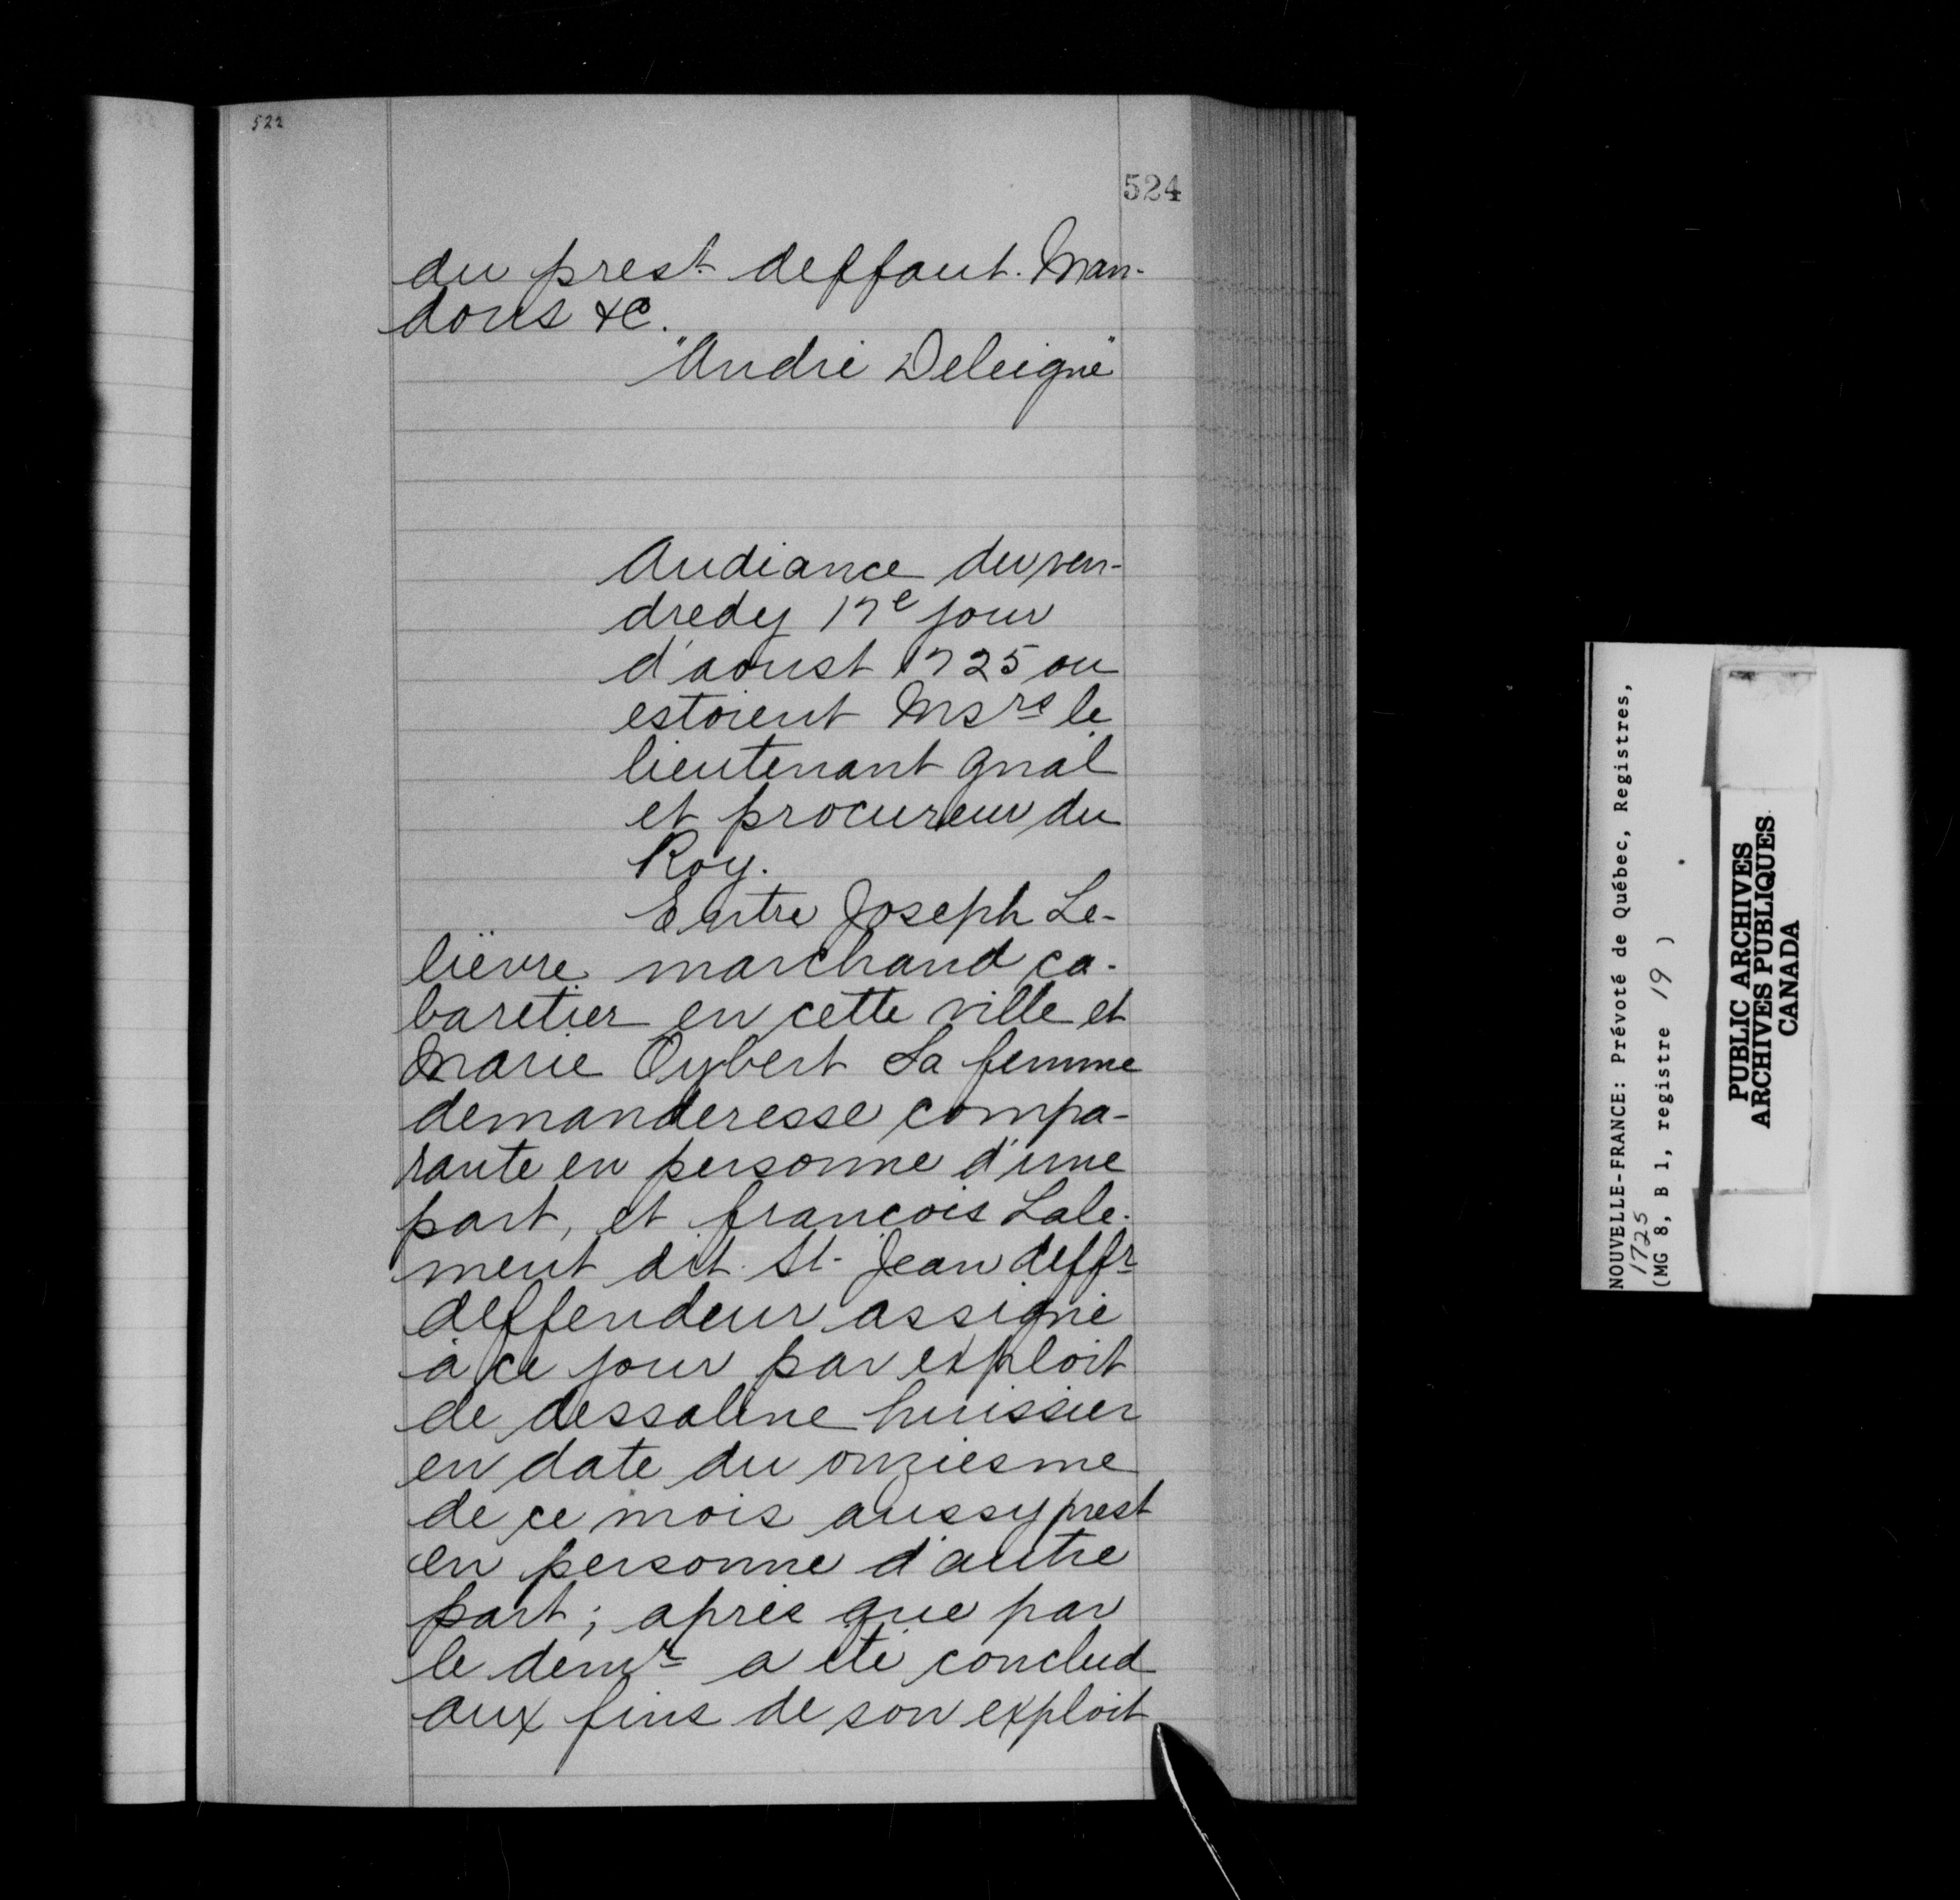 522
524
du prest. deffaut. Man-
dons &c.
"André Deleigne"
Audiance du ven-
dredy 17e jour
d'aoust 1725 ou
estoient Msrs le
lieutenant gnal
et procureur du
Roy.
Entre Joseph Le-
lièvre marchand ca-
baretier en cette ville et
Marie Oybert Sa femme
demanderesse compa-
rante en personne d'une
part, et françois Lale-
ment dit St-Jean deffr
deffendeur assigné
à ce jour par exploit
de dessaline huissier
en date du onziesme
de ce mois aussy prest
en personne d'autre
part; après que par
le demr a été conclud
aux fins de son exploit
NOUVELLE-FRANCE: Prévoté de Québec, Registres,
1725
(MG 8, B 1, registre 19 )
PUBLIC ARCHIVES
ARCHIVES PUBLIQUES
CANADA